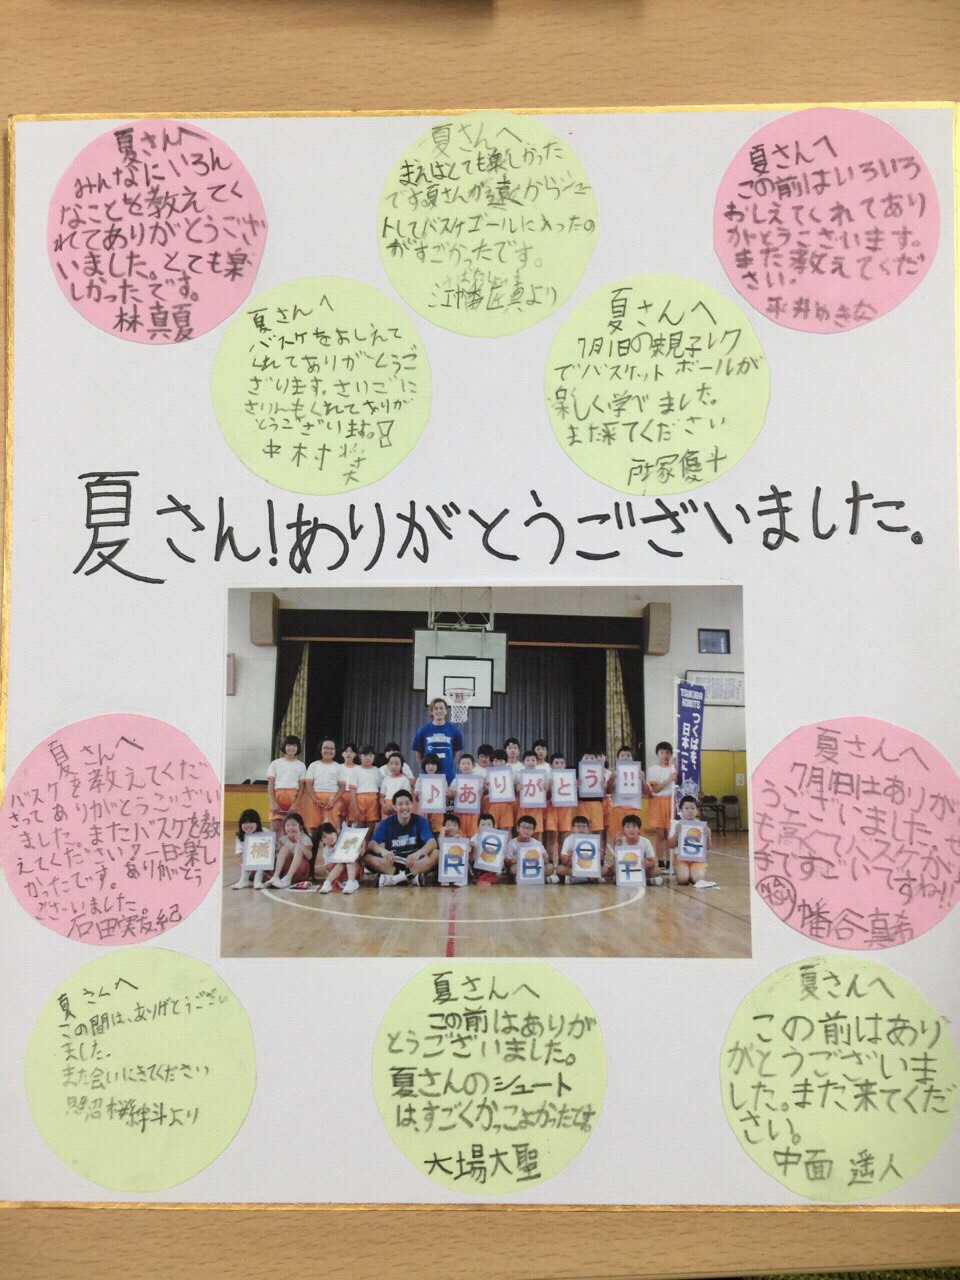 夏さんへ
みんなにいろん
なことを教えてく
れてありがとうござ
いました。とても楽
しかったです。
林真夏
夏さんへ
まえはとても楽しかった
です。夏さんが遠くからシュー
トしてバスケゴールに入ったの
がすごかったです。
より
夏さんへ
この前はいろいろ
おしえてくれてあり
がとうございます。
また教えてくだ
さい。
平井
夏さんへ
バスケをおしえて
くれてありがとうご
ざります。さいごに
さりんもくれてありが
とうございます。!
中村
夏さんへ
7月1日の親子レク
でバスケットボールが
楽しく学べました。
また来てください
優斗
夏さん!ありがとうございました。
TSUKUBA
ROBOTS
つくばを、
日本一にし
♪ありがとう!!
ROBOTS
夏さんへ
バスケを教えてくだ
さってありがとうござい
ました。またバスケを教
えてください♪一日楽し
かったです。ありがとう
ございました。
石田
夏さんへ
7月1日はありが
うございました。
も高くバスケが
きてすごいですね!!
幡谷真希
夏さんへ
この間は、ありがとうござい
ました。
また会いにきてください
より
夏さんへ
この前はありが
とうございました。
夏さんのシュート
は、すごくかっこよかったです。
大場大聖
夏さんへ
この前はあり
がとうございま
した。また来てくだ
さい。
中面 遥人